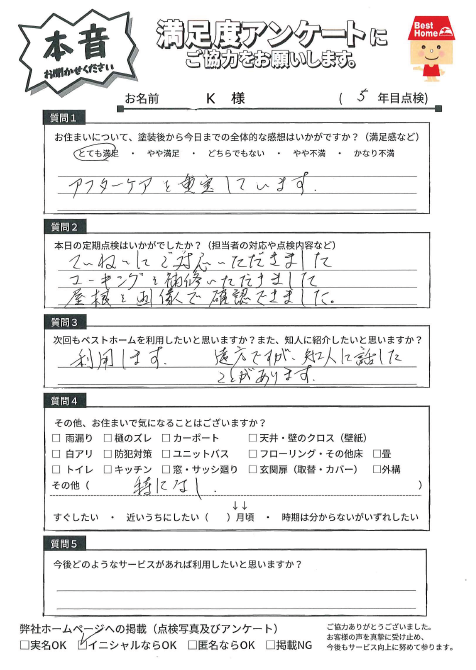 本音
お聞かせください
満足度アンケートに
ご協力をお願いします。
Best Home
お名前 K 様 ( 5 年目点検)
質問1
お住まいについて、塗装後から今日までの全体的な感想はいかがですか?(満足感など)
とても満足 ・ やや満足 ・ どちらでもない ・ やや不満 ・ かなり不満
アフターケアも充実しています.
質問2
本日の定期点検はいかがでしたか?(担当者の対応や点検内容など)
ていねいにご対応いただきました
コーキングを補修いただけました
屋根も画像で確認できました。
質問3
次回もベストホームを利用したいと思いますか?また、知人に紹介したいと思いますか?
利用します. 遠方ですが、知人に話した
ことがあります.
質問4
その他、お住まいで気になることはございますか?
□ 雨漏り □ 樋のズレ □ カーポート □ 天井・壁のクロス(壁紙)
□ 白アリ □ 防犯対策 □ ユニットバス □ フローリング・その他床 □畳
□ トイレ □ キッチン □ 窓・サッシ廻り □ 玄関扉(取替・カバー) □外構
その他( 特になし. )
↓↓
すぐしたい ・ 近いうちにしたい( )月頃 ・ 時期は分からないがいずれしたい
質問5
今後どのようなサービスがあれば利用したいと思いますか?
弊社ホームページへの掲載(点検写真及びアンケート)
□実名OK ☑イニシャルならOK □匿名ならOK □掲載NG
ご協力ありがとうございました。
お客様の声を真摯に受け止め、
今後もサービス向上に努めて参ります。